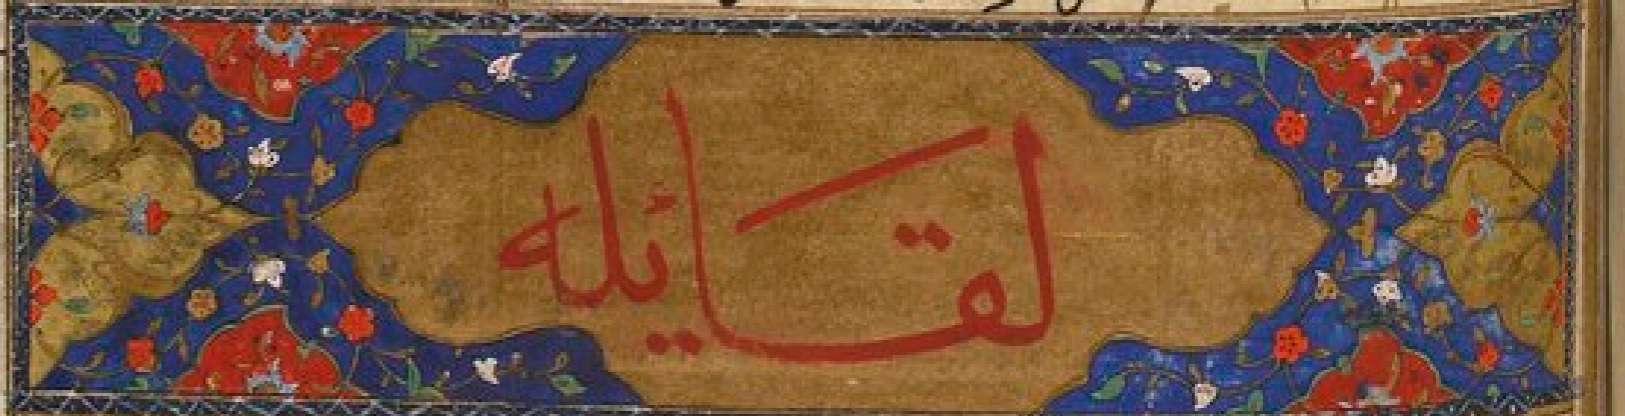 لقایٔله